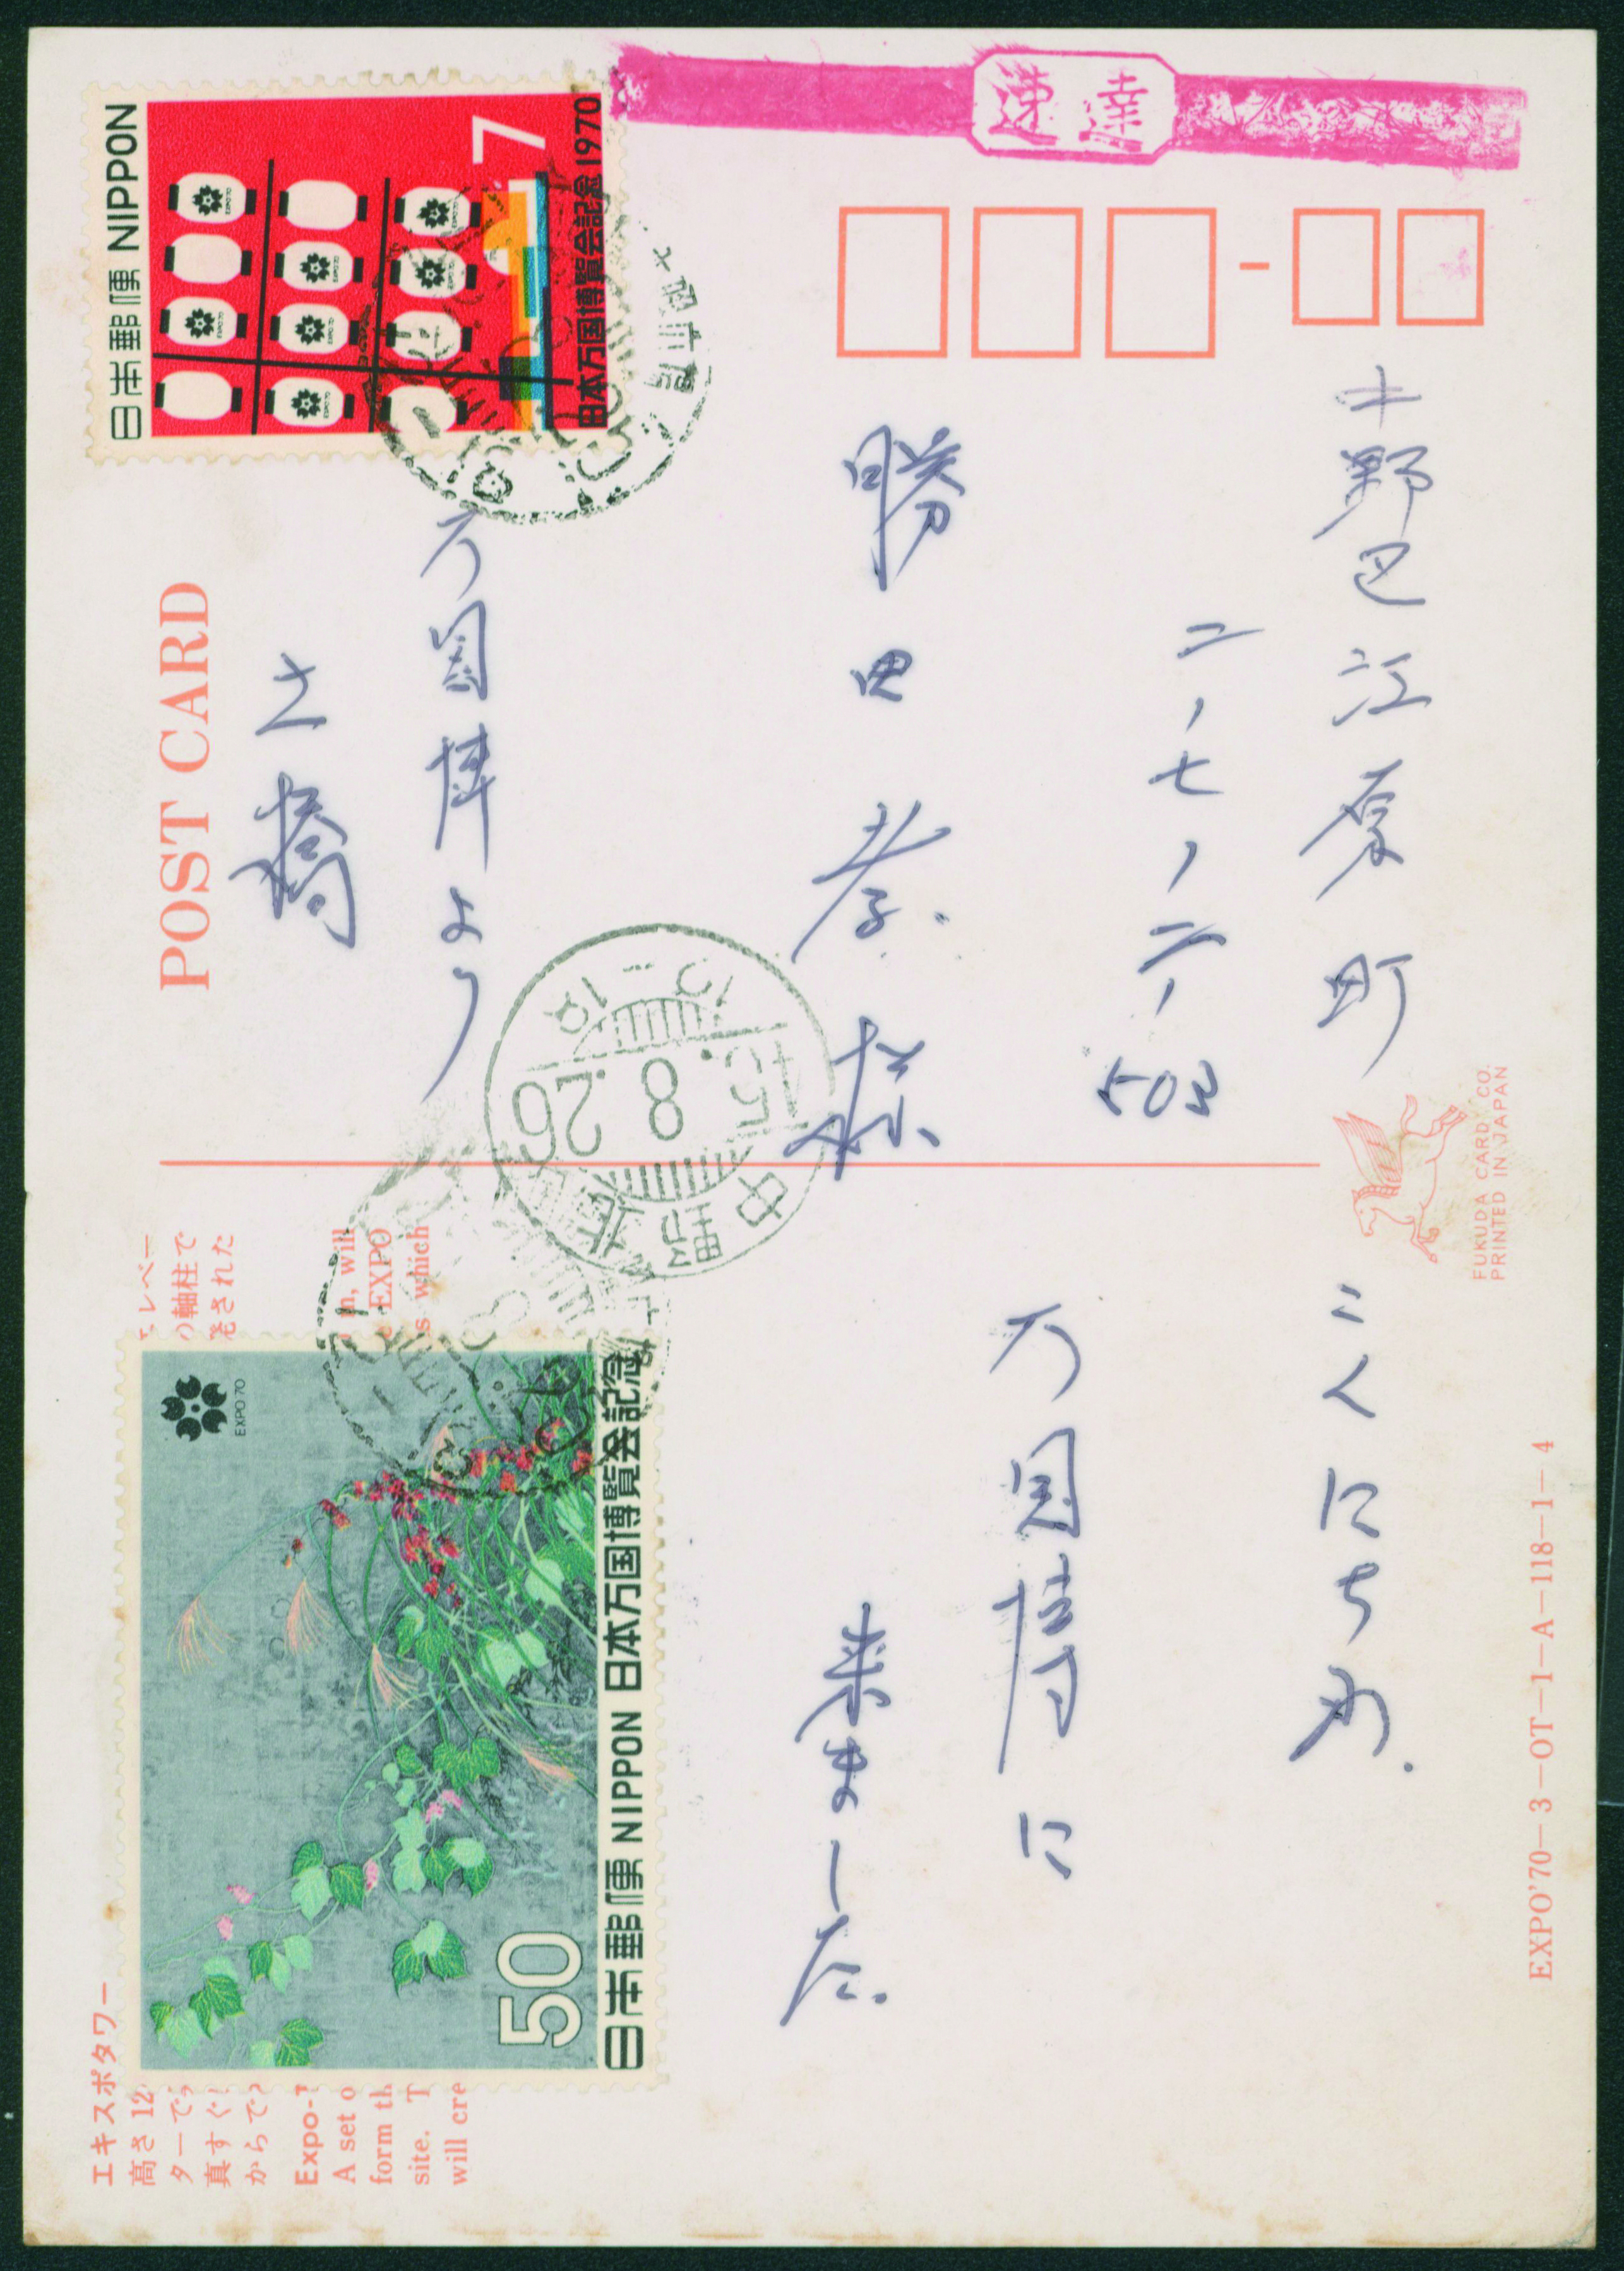 速達
中野区江原町
二ノ七ノ二ノ
503
勝田孝様
万国博より
土橋
こんにちわ.
万国博に
来ました.
日本郵便 NIPPON
7
日本万国博覧会記念1970
EXPO'70
50
日本郵便 NIPPON 日本万国博覧会記念
中野
45.8.26
12-18
POST CARD
FUKUDA CARD, CO.
PRINTED IN JAPAN
EXPO'70-3-OT-1-A-118-1-4
エキスポタワー
高さ 12
ターで
真すぐ
からで
エレベー
の軸柱で
された
Expo-
A set o
form th
site. T
will cre
n, will
EXPO
s which